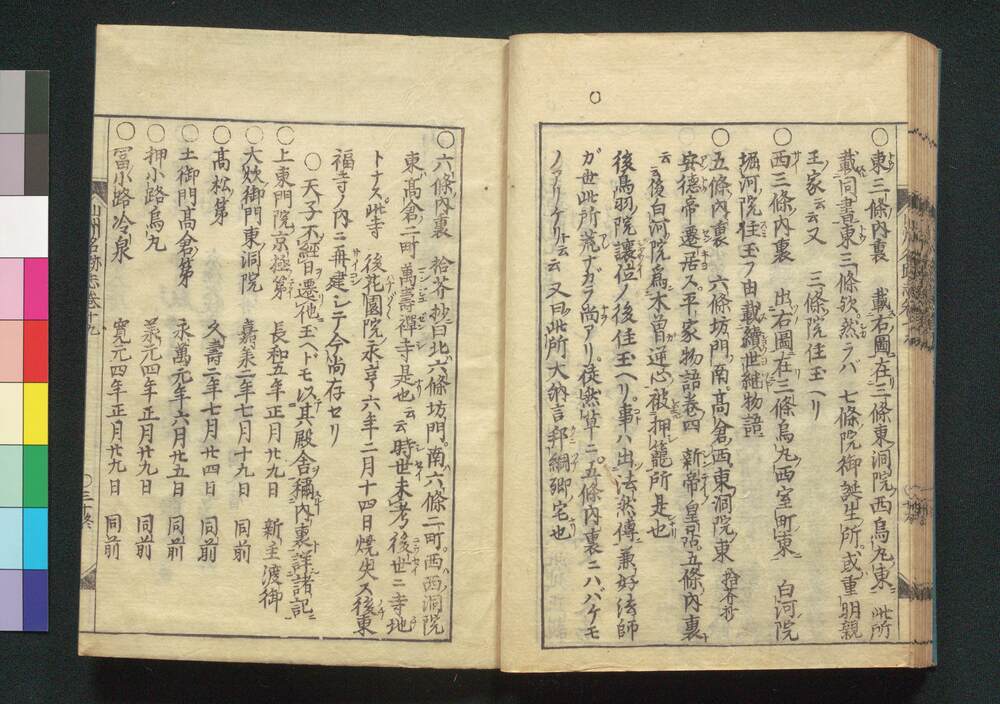 ○東三條内裏　載右圖在三條東洞院西烏丸東此所
載同書東三條歟然ラバ　七條院御誕生所或重明親
王家云云又　三條院住玉ヘリ
○西三條内裏　出右圖在三條烏丸西室町東　白河院
堀河院住玉フ由載續世継物語
○五條内裏　六條坊門南高倉西東洞院東拾芥抄
安德帝遷居ス平家物語卷四　新帝皇居五條内裏
云云後白河院爲木曽逆心被押籠所是也
後鳥羽院讓位ノ後住玉ヘリ事ハ出法然傳兼好法師
ガ世此所荒ナガラ尚アリ徒然草ニ五條内裏ニハバケモ
ノアリケリト云云又曰此所大納言邦綱卿宅也
○六條内裏　拾芥抄曰北六條坊門南六條二町西西洞院
東高倉二町萬壽禪寺是也云云時世未考後世ニ寺地
トナス此寺　後花園院永亨六年二月十四日燒失ス後東
福寺ノ内ニ再建シテ今尚存セリ
○天子不經日遷他玉ヘドモ以其殿舎稱内裏詳諸記ニ
○上東門院京極第　長和五年正月廿九日　新主渡御
○大炊御門東洞院　嘉承二年七月十九日　同前
○高松第　久壽二年七月廿四日　同前
○土御門高倉第　永萬元年六月廿五日　同前
○押小路烏丸　承元四年正月廿九日　同前
○冨小路冷泉　寛元四年正月廿九日　同前
山州名跡志卷十九
○三十終